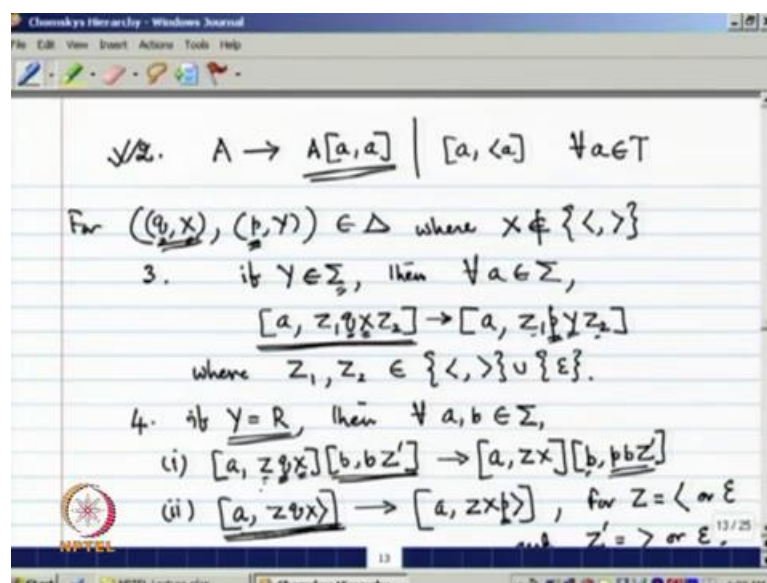 Chomskys Hierarchy - Windows Journal
File Edit View Insert Actions Tools Help
2. A → A[a,a] | [a, <a] ∀a∈T
For ((q,X), (p,Y)) ∈ Δ where X ∉ {<, >}
3. if Y∈Σ, then ∀a∈Σ,
[a, Z₁qXZ₂] → [a, Z₁pYZ₂]
where Z₁, Z₂ ∈ {<, >} ∪ {ε}.
4. if Y = R, then ∀ a,b ∈ Σ,
(i) [a, ZqX][b,bZ'] → [a, ZX][b, pbZ']
(ii) [a, ZqX>] → [a, ZXp>], for Z = < or ε
and Z' = > or ε.
13/25
NPTEL
13